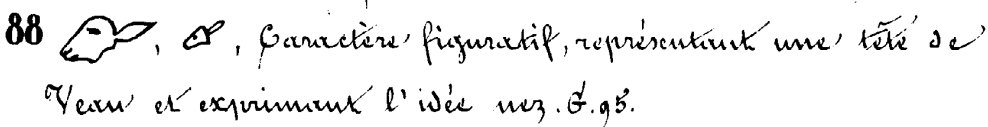 88 , , Caractère figuratif, représentant une tête de
Veau et exprimant l'idée nez. G. 95.